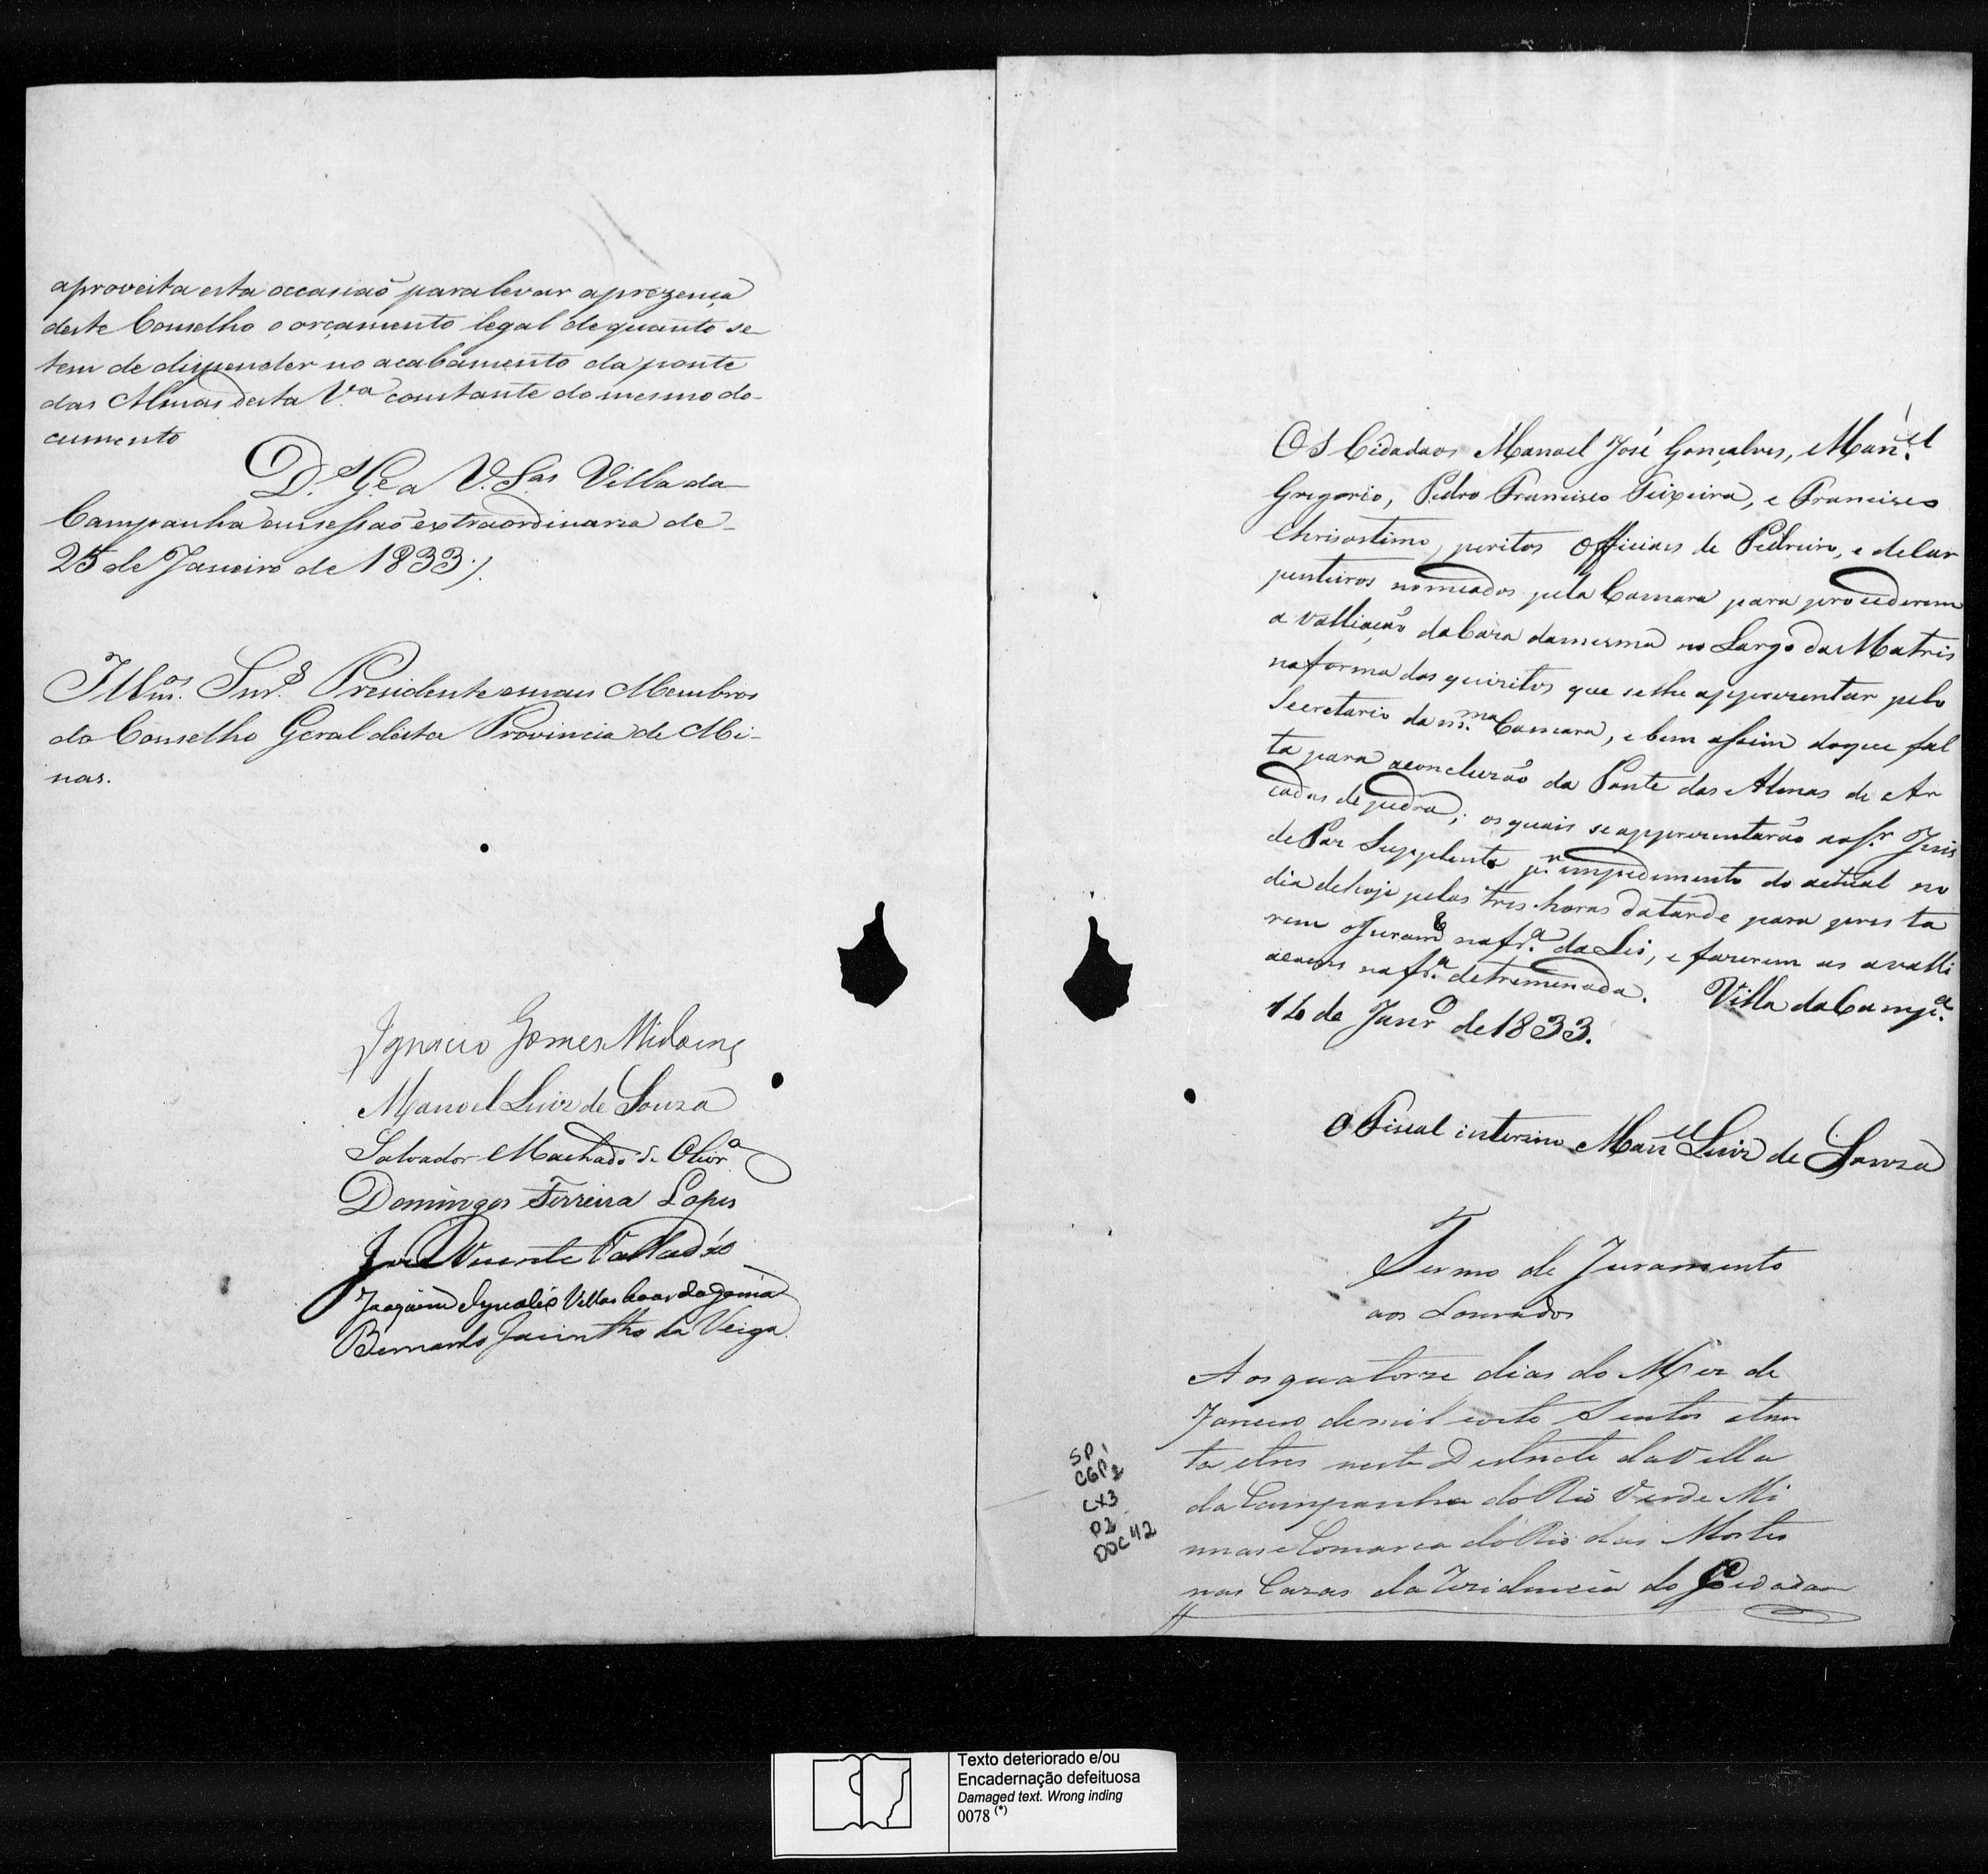 aproveita esta occasiaõ para levar a prezença
deste Conselho o orçamento legal de quanto se
tem de dispender no acabamento da ponte
das Almas desta V.ª constante do mesmo do-
cumento
D.s G.e a V. S.as Villa da
Campanha em sessaõ extraordinaria de
25 de Janeiro de 1833
Illm.os Snr.s Presidente e mais Membros
do Conselho Geral desta Provincia de Mi-
nas.
Ignacio Gomes Midoens
Manoel Luiz de Souza
Salvador Machado de Olivr.ª
Domingos Ferreira Lopes
José Vicente Valladaõ
Joaquim Ignacio Villas boas da Gama
Bernardo Jacintho da Veiga
Os Cidadaos Manoel José Gonçalves, Man.el
Gregorio, Pedro Francisco Teixeira, e Francisco
Chrisostimo, peritos Officiaes de Pedreiro, e de Car
penteiros nomeados pela Camara para procederem
a valliaçaõ da Caza da mesma no Largo da Matris
na forma dos quizitos que se lhe appresentar pelo
Secretario da m.ma Camara, e bem assim do que fal
ta para a concluzaõ da Ponte das Almas de Ar
cadas de pedra; os quais se appresentaraõ ao S.r Juis
de Paz Supplente p.r impedimento do actual no
dia de hoje pelas tres horas da tarde para pres ta
rem o Juram.to na fr.ª da Lei, e fazerem as avalli
acoens na fr.ª detreminada. Villa da Camp.ª
14 de Janr.o de 1833.
O Fiscal interino Man.el Luiz de Souza
Termo de Juramento
aos Louvados
Aos quatorze dias do Mez de
Janeiro de mil oito Sentos e trin
ta e tres neste Destricto da Villa
da Campanha do Rio Verde Mi
nnas e Comarca do Rio das Mortes
nas Cazas da Rezidencia do Cidadao
SP
CGP 2
CX3
P2
DOC 42
Texto deteriorado e/ou
Encadernação defeituosa
Damaged text. Wrong inding
0078 (*)